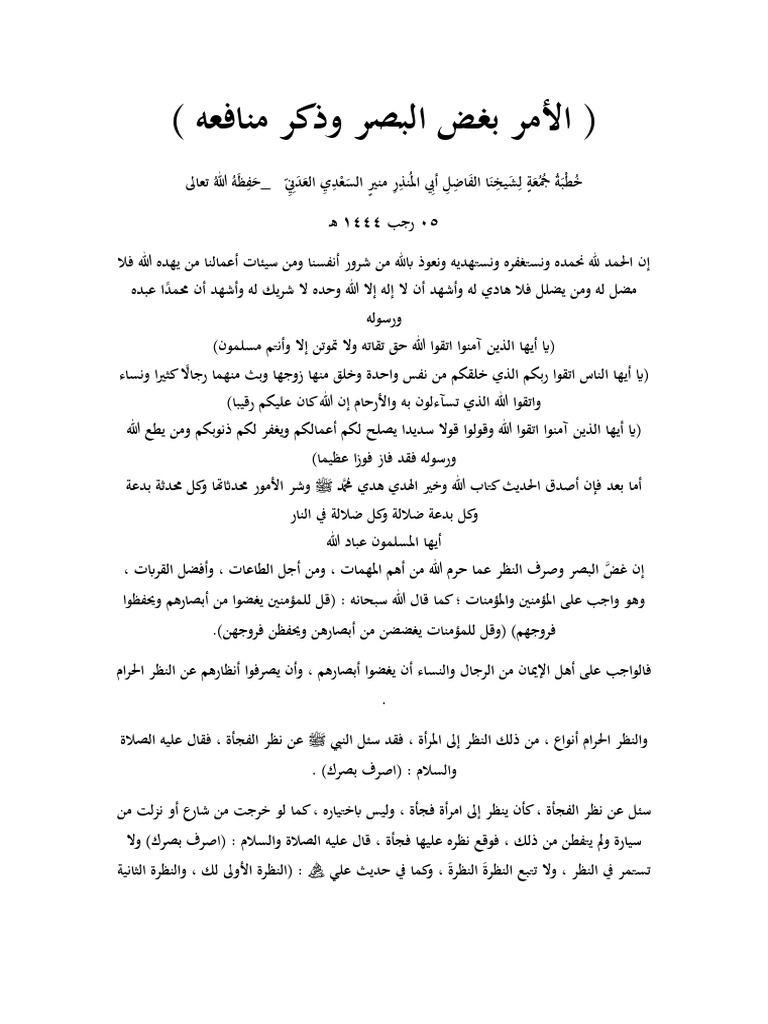 ( الأمر بغض البصر وذكر منافعه )
خُطْبَةُ جُمُعَةٍ لِشَيخِنَا الفَاضِلِ أَبِي المُنذِرِ منيرٍ السَعْدِيِ العَدَنِيِّ _حَفِظَهُ اللَّهُ تعالى
٠٥ رجب ١٤٤٤ هـ
إن الحمد لله نحمده ونستغفره ونستهديه ونعوذ بالله من شرور أنفسنا ومن سيئات أعمالنا من يهده الله فلا
مضل له ومن يضلل فلا هادي له وأشهد أن لا إله إلا الله وحده لا شريك له وأشهد أن محمدًا عبده
ورسوله
(يا أيها الذين آمنوا اتقوا الله حق تقاته ولا تموتن إلا وأنتم مسلمون)
(يا أيها الناس اتقوا ربكم الذي خلقكم من نفس واحدة وخلق منها زوجها وبث منهما رجالًا كثيرا ونساء
واتقوا الله الذي تسآءلون به والأرحام إن الله كان عليكم رقيبا)
(يا أيها الذين آمنوا اتقوا الله وقولوا قولا سديدا يصلح لكم أعمالكم ويغفر لكم ذنوبكم ومن يطع الله
ورسوله فقد فاز فوزا عظيما)
أما بعد فإن أصدق الحديث كتاب الله وخير الهدي هدي محمَّد ﷺ وشر الأمور محدثاتها وكل محدثة بدعة
وكل بدعة ضلالة وكل ضلالة في النار
أيها المسلمون عباد الله
إن غضَّ البصر وصرف النظر عما حرم الله من أهم المهمات ، ومن أجل الطاعات ، وأفضل القربات ،
وهو واجب على المؤمنين والمؤمنات ؛ كما قال الله سبحانه : (قل للمؤمنين يغضوا من أبصارهم ويحفظوا
فروجهم) (وقل للمؤمنات يغضضن من أبصارهن ويحفظن فروجهن).
فالواجب على أهل الإيمان من الرجال والنساء أن يغضوا أبصارهم ، وأن يصرفوا أنظارهم عن النظر الحرام
.
والنظر الحرام أنواع ، من ذلك النظر إلى المرأة ، فقد سئل النبي ﷺ عن نظر الفجأة ، فقال عليه الصلاة
والسلام : (اصرف بصرك) .
سئل عن نظر الفجأة ، كأن ينظر إلى امرأة فجأة ، وليس باختياره ، كما لو خرجت من شارع أو نزلت من
سيارة ولم يتفطن من ذلك ، فوقع نظره عليها فجأة ، قال عليه الصلاة والسلام : (اصرف بصرك) ولا
تستمر في النظر ، ولا تتبع النظرةَ النظرةَ ، وكما في حديث علي : (النظرة الأولى لك ، والنظرة الثانية